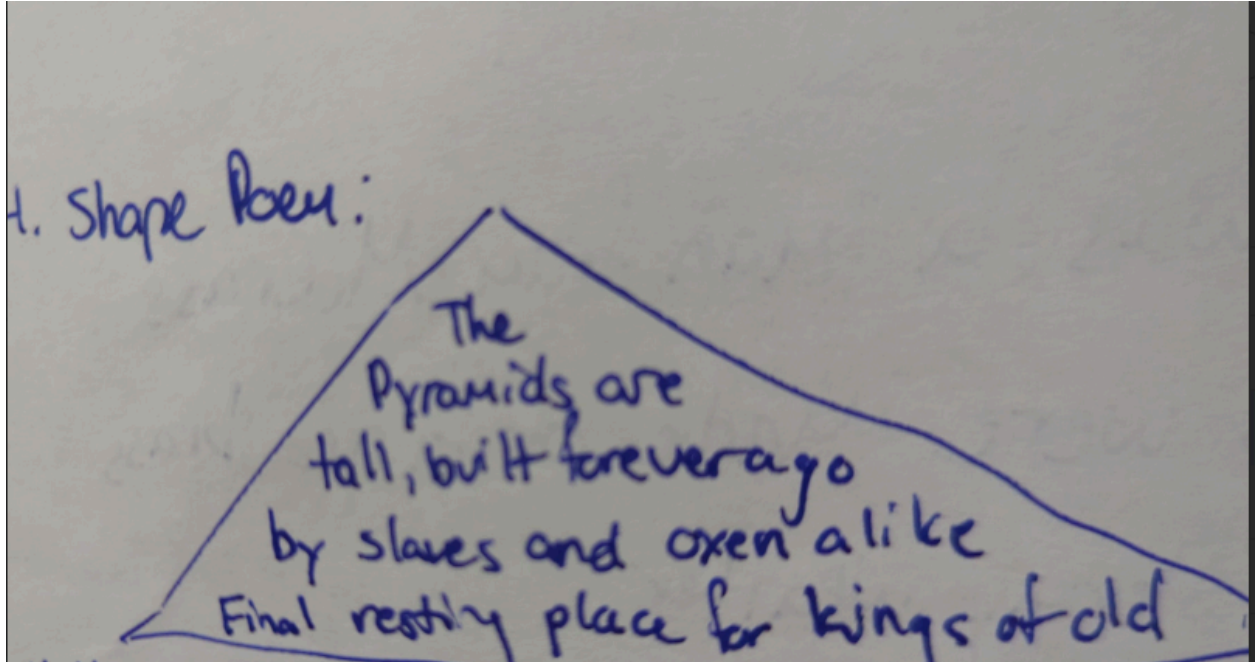 4. Shape Poem:
The
Pyramids are
tall, built forever ago
by slaves and oxen alike
Final resting place for kings of old